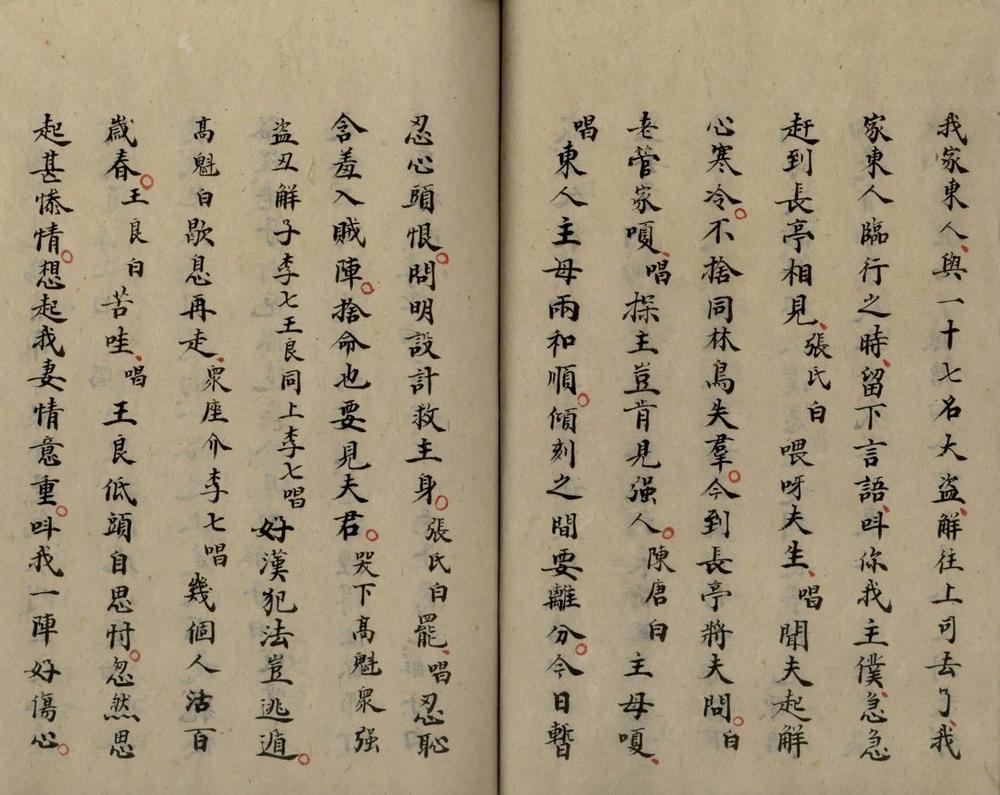 我家東人、與一十七名大盜、解往上司去了、我
家東人臨行之時、留下言語、呌你我主僕、急急
赶到長亭相見、張氏白 喂呀夫生、唱聞夫起解
心寒冷。不捨同林鳥失羣。今到長亭將夫問。白
老管家嗄、唱探主豈肯見强人。陳唐白 主母嗄、
唱東人主母兩和順。傾刻之間要離分。今日暫
忍心頭恨。問明設計救主身。張氏白罷、唱忍恥
含羞入賊陣。捨命也要見夫君。哭下高魁眾强
盜丑解子李七王良同上李七唱好漢犯法豈逃遁。
高魁白歇息再走、眾座介李七唱幾個人活百
歲春。王良白 苦哇、唱王良低頭自思忖。忽然思
起甚慘情。想起我妻情意重。呌我一陣好傷心。